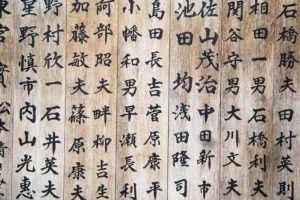 石橋勝夫 田村英明
相田一男 石橋利夫
関谷守男 大川文夫
佐山茂治 中田新市
池田均 浅田隆司
島田長吉 菅原康平
小幡和男 早瀬長利
阿部昭夫 畔柳吉生
加藤敏夫 篠原康夫
野村欣一 石井英夫
星野慎市 内山光惠